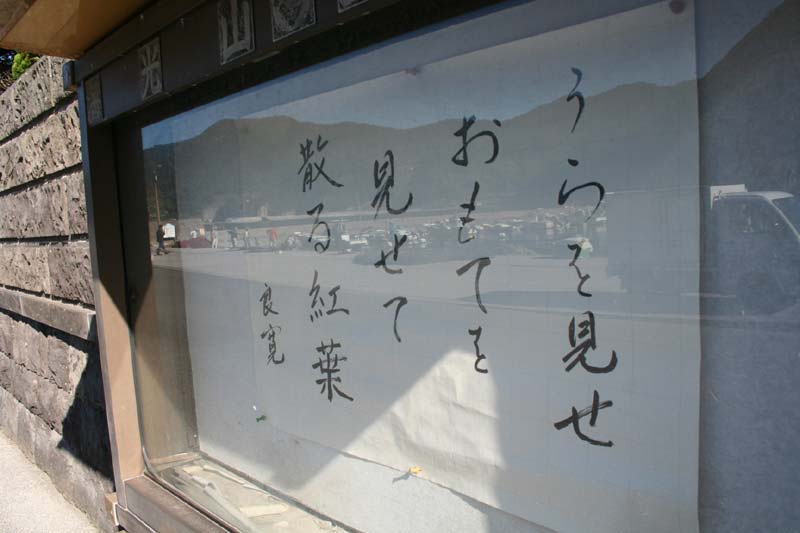 光山
うらを見せ
おもてを
見せて
散る紅葉
良寛